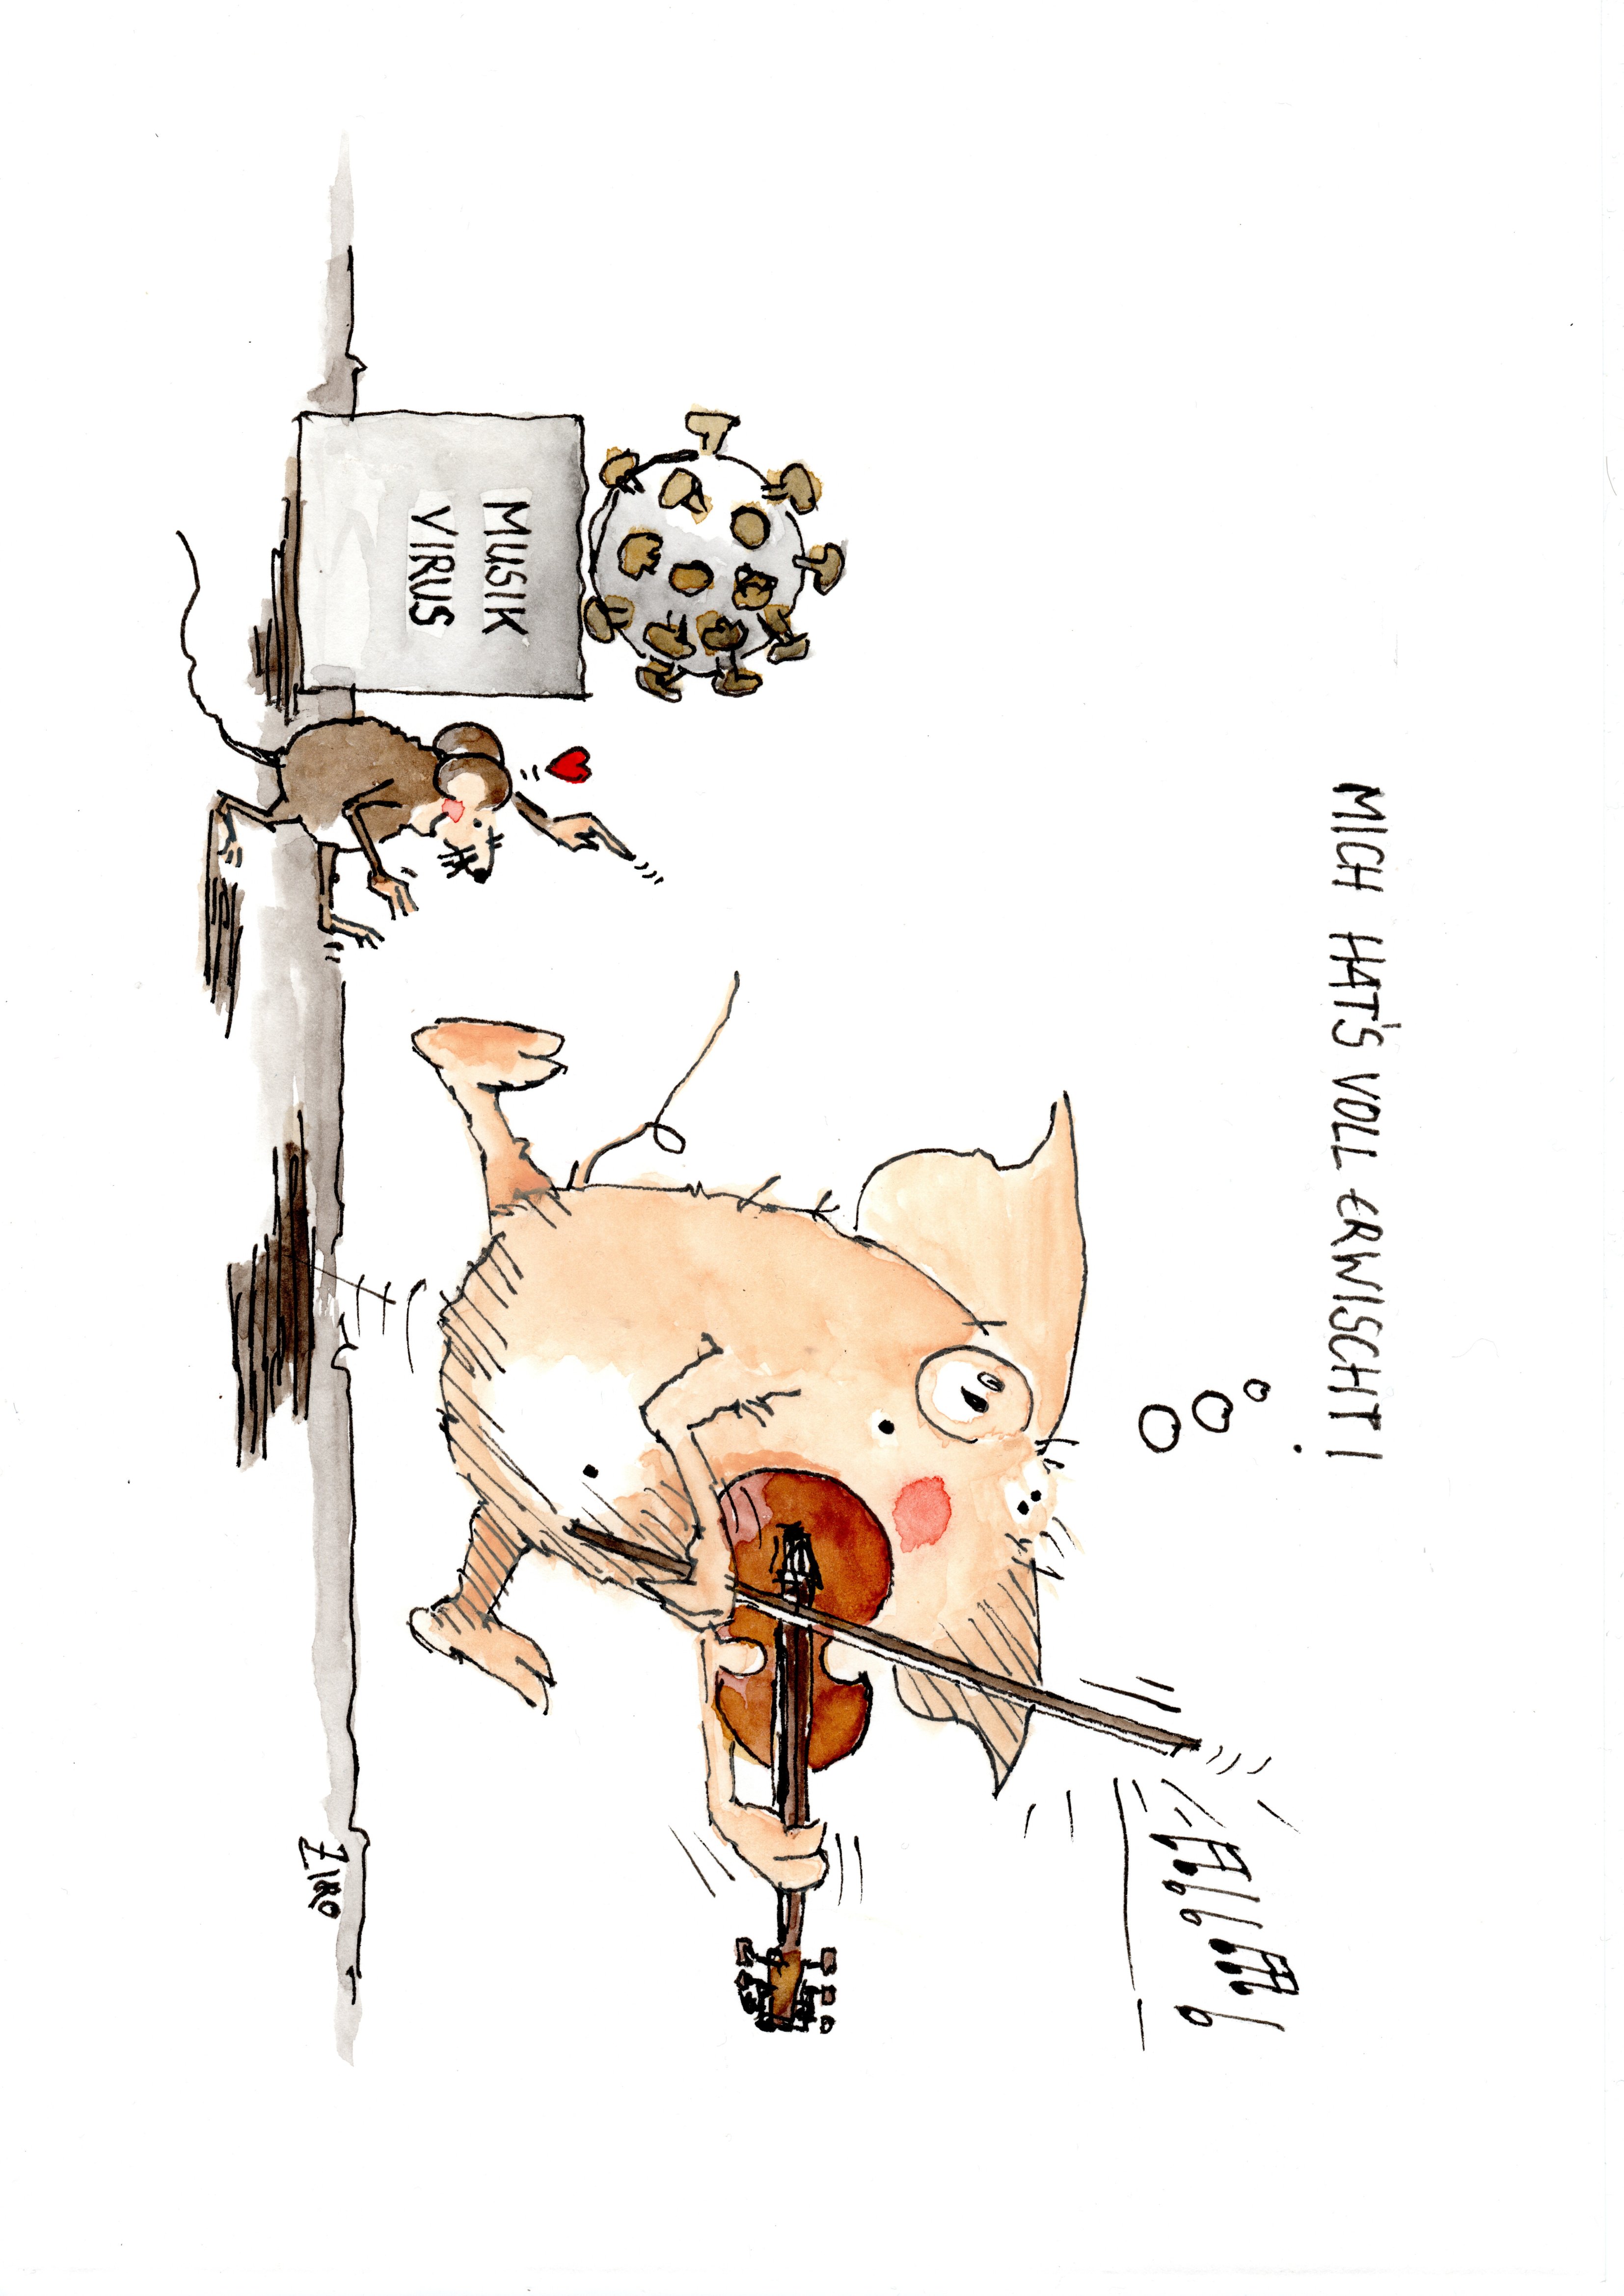 MICH HAT'S VOLL ERWISCHT!
MUSIK
VIRUS
ZIRO